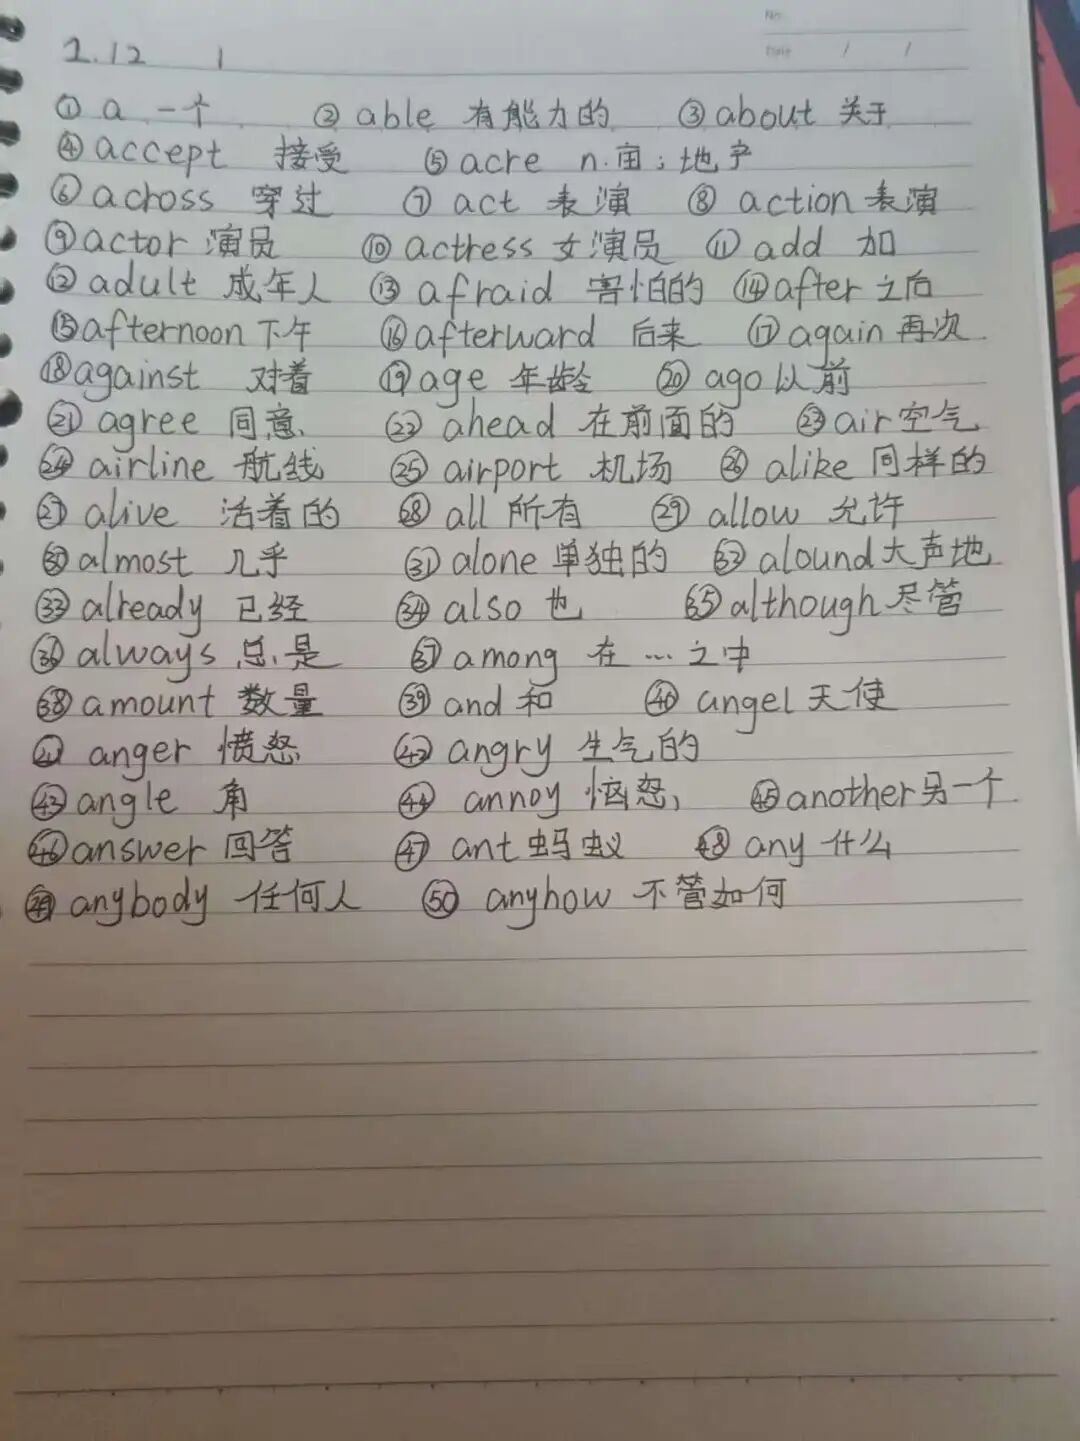 1.12 1
No.
Date / /
① a 一个 ② able 有能力的 ③ about 关于
④ accept 接受 ⑤ acre n.亩;地产
⑥ across 穿过 ⑦ act 表演 ⑧ action 表演
⑨ actor 演员 ⑩ actress 女演员 ⑪ add 加
⑫ adult 成年人 ⑬ afraid 害怕的 ⑭ after 之后
⑮ afternoon 下午 ⑯ afterward 后来 ⑰ again 再次
⑱ against 对着 ⑲ age 年龄 ⑳ ago 以前
㉑ agree 同意 ㉒ ahead 在前面的 ㉓ air 空气
㉔ airline 航线 ㉕ airport 机场 ㉖ alike 同样的
㉗ alive 活着的 ㉘ all 所有 ㉙ allow 允许
㉚ almost 几乎 ㉛ alone 单独的 ㉜ alound 大声地
㉝ already 已经 ㉞ also 也 ㉟ although 尽管
㊱ always 总是 ㊲ among 在…之中
㊳ amount 数量 ㊴ and 和 ㊵ angel 天使
㊶ anger 愤怒 ㊷ angry 生气的
㊸ angle 角 ㊹ annoy 恼怒, ㊺ another 另一个
㊻ answer 回答 ㊼ ant 蚂蚁 ㊽ any 什么
㊾ anybody 任何人 ㊿ anyhow 不管如何